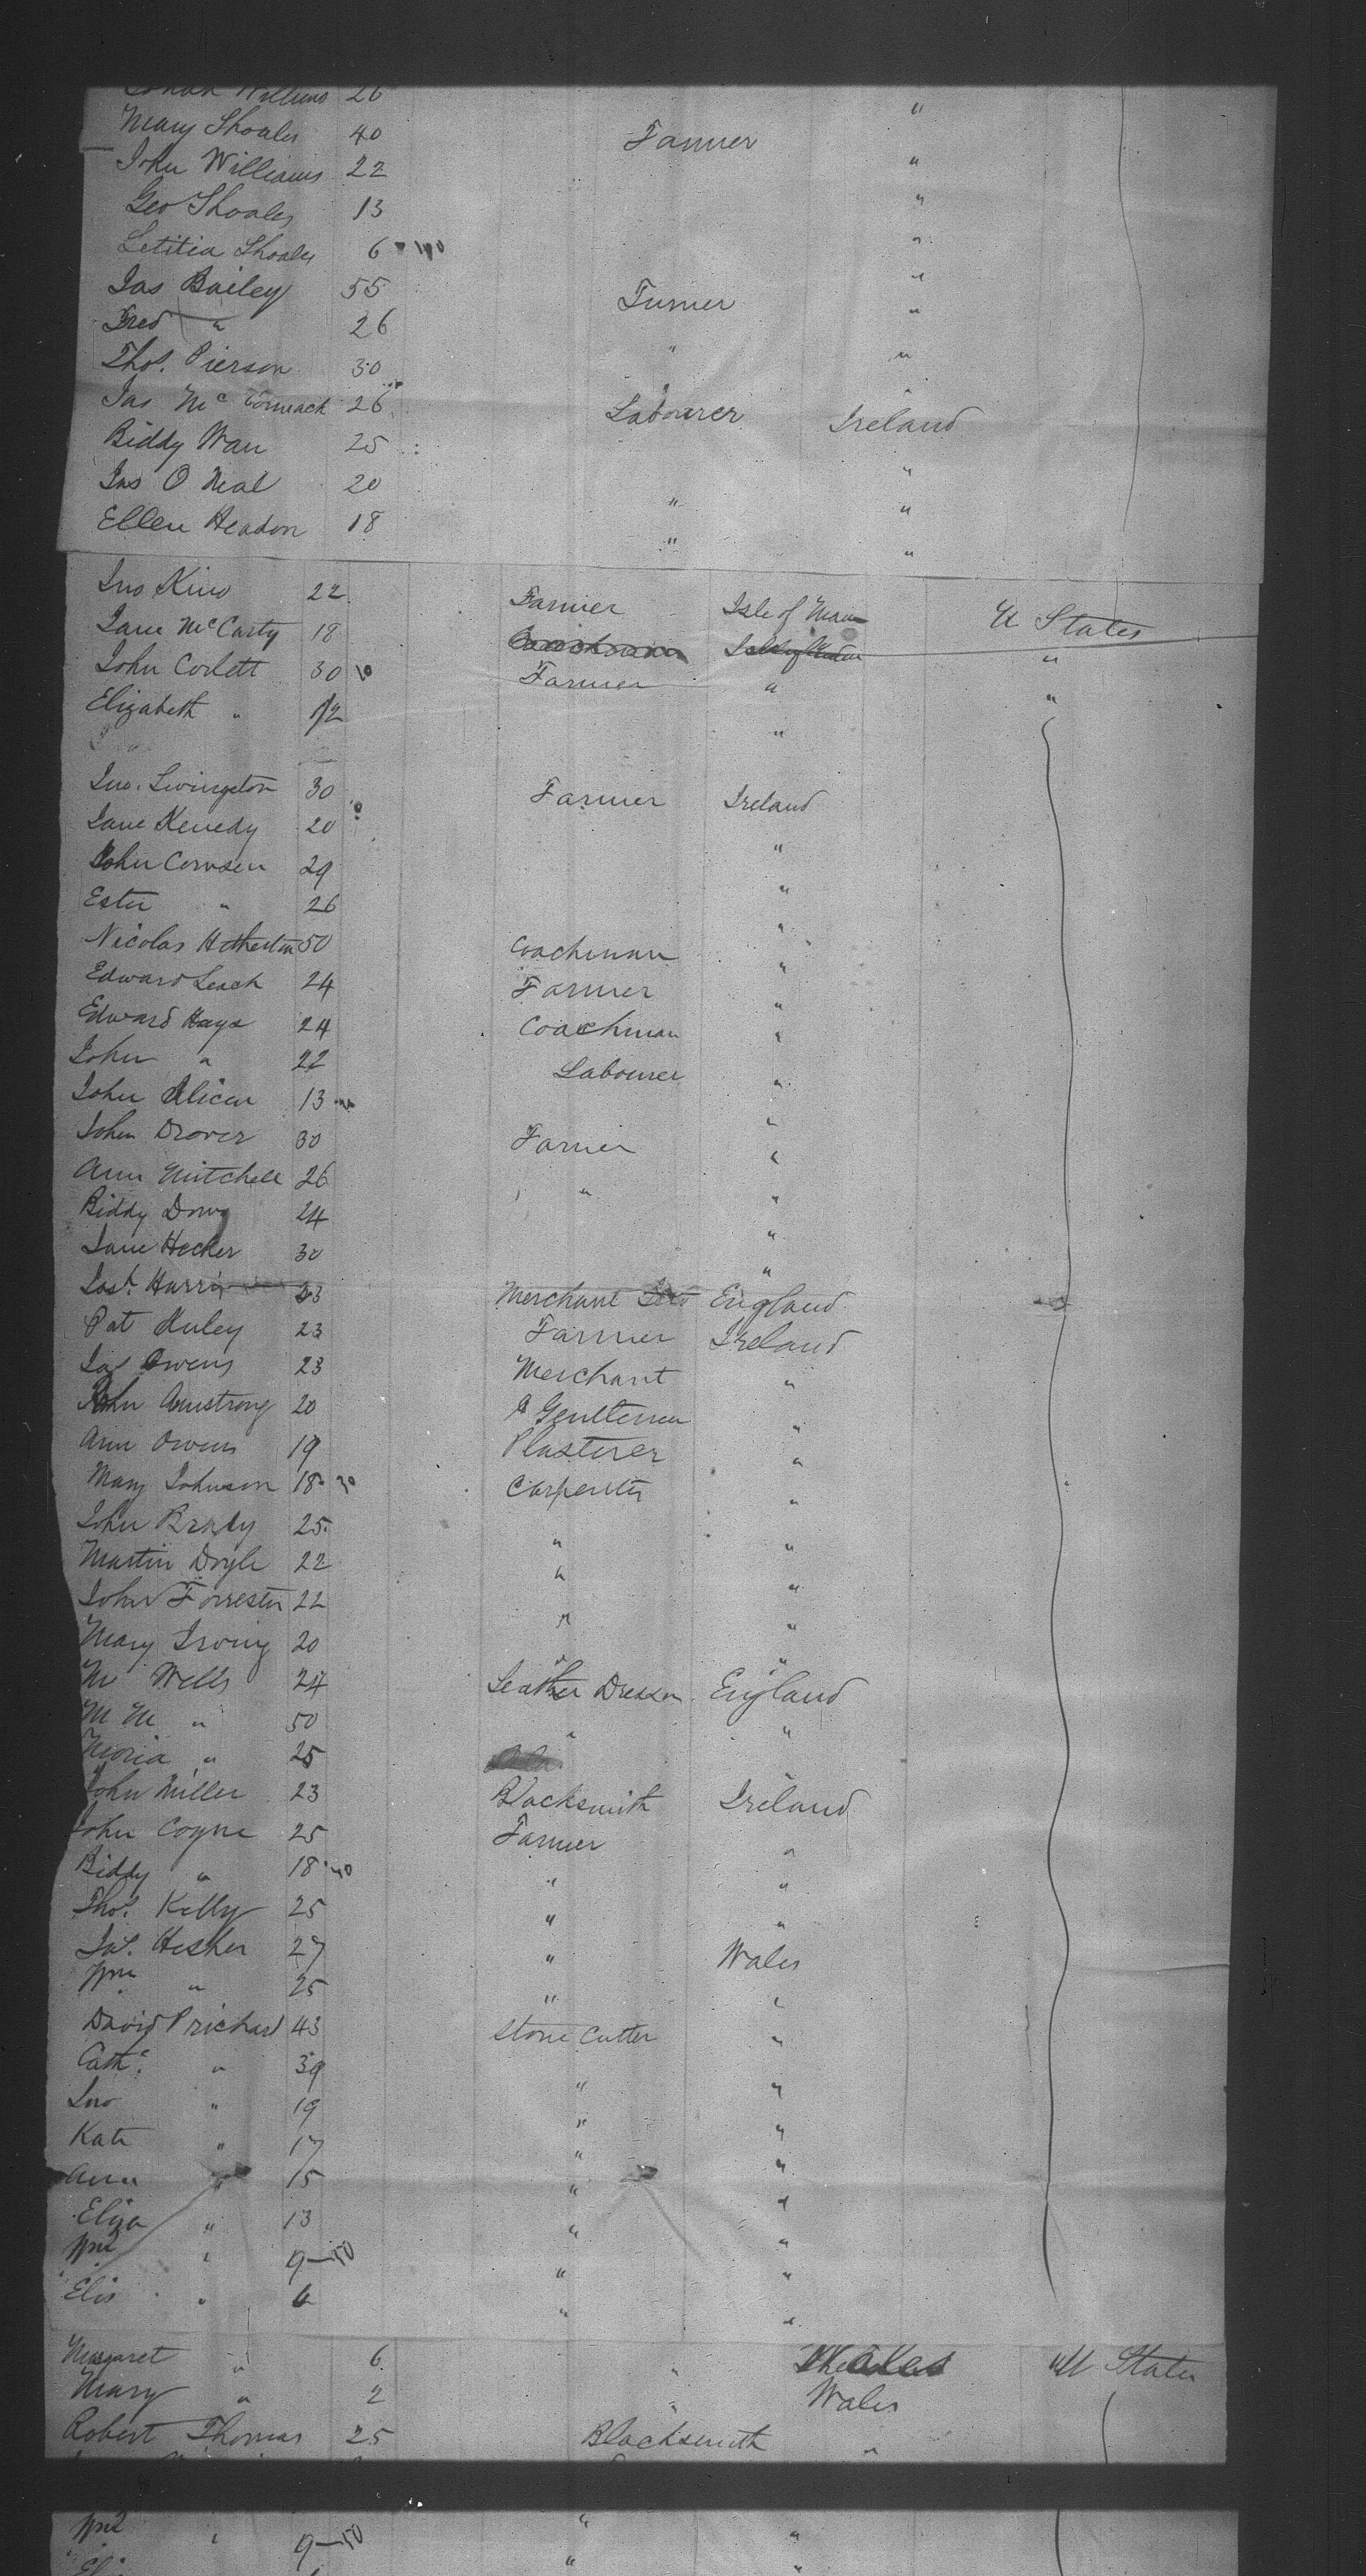 Williams 26 "
Mary Shoales 40 Farmer "
John Williams 22 "
Geo Shoales 13 "
Letitia Shoales 6 "
Jas Bailey 55 Turner "
Fred " 26 " "
Thos. Pierson 30 " "
Jas Mc Cormack 26 Labourer Ireland
Biddy Wan 25 "
Jas O Neal 20 " "
Ellen Headon 18 " "
Jno King 22 Farmer Isle of Man U States
Jane McCarty 18 "
John Corlett 30 Farmer " "
Elizabeth " 1/2 "
Jno. Livingston 30 Farmer Ireland
Jane Kenedy 20 "
John Cowsen 29 "
Ester " 26 "
Nicolas Hetherton 50 Coachman "
Edward Leach 24 Farmer "
Edward Hays 24 Coachman "
John " 22 Labourer "
John 13 "
John Drover 30 Farmer "
Ann Mitchell 26 " "
Biddy Dowg 24 "
Jane Hecker 30 "
Josh. Harris 23 Merchant England
Pat Huley 23 Farmer Ireland
Jas Owens 23 Merchant "
John Armstrong 20 Gentlemen "
Ann Owens 19 Plasterer "
Mary Johnson 18 Carpenter "
John Brady 25 " "
Martin Doyle 22 " "
John Forrester 22 " "
Mary Irving 20 " "
M Wells 24 Leather Dresser England
M M " 50 " "
Moria " 25 "
John Miller 23 Blacksmith Ireland
John Coyne 25 Farmer "
Biddy " 18 " "
Thos. Kelly 25 " "
Jas. Hesher 27 " Wales
Wm " 25 " "
David Prichard 43 Stone Cutter "
Cathe. " 39 " "
Jno " 19 " "
Kate " 17 " "
Ann " 15 " "
Eliza " 13 " "
Wm " 9—50 " "
Elis " 6 " "
Margaret " 6 " U States
Mary " 2 " Wales
Robert Thomas 25 Blacksmith "
Wm " 9—50 " "